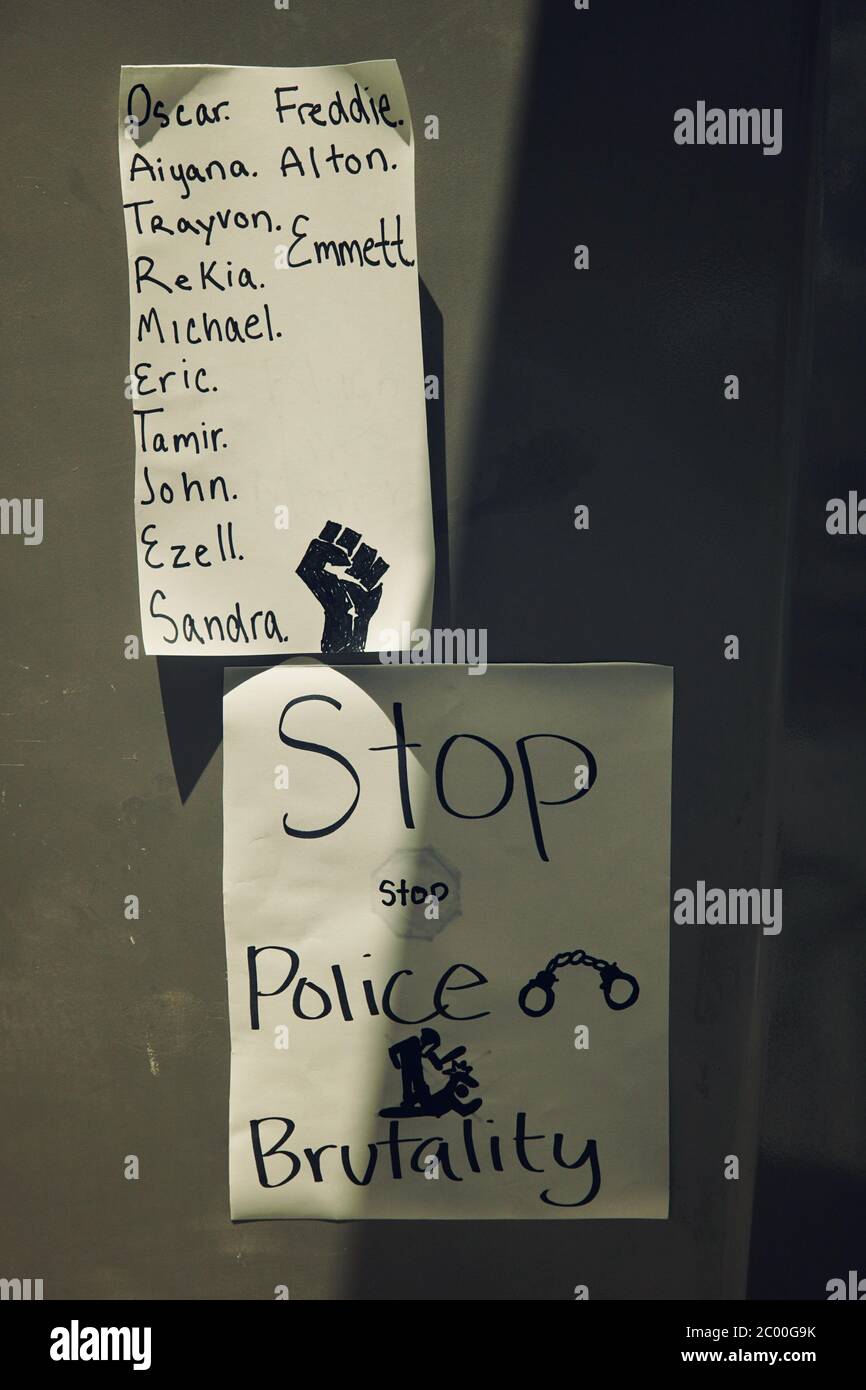 Oscar. Freddie.
Aiyana. Alton.
Trayvon.
Emmett
Rekia.
Michael.
Eric.
Tamir.
John.
Ezell.
Sandra.
Stop
Stop
Police
Brutality
alamy
alamy
Image ID: 2C00G9K
www.alamy.com